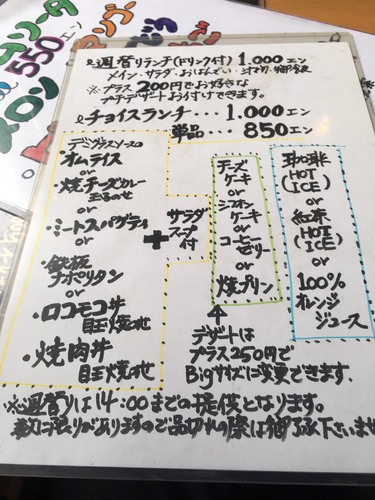 クリームソーダ
550エン
メロン
週替りランチ(ドリンク付) 1.000エン
メイン・サラダ・おばんざい・汁物・御飯
※プラス200円でお好きな
プチデザートお付けできます。
チョイスランチ・・・1.000エン
単品・・・850エン
デミグラスソースの
オムライス
or
・焼チーズカレー
玉子のせ
or
・ミートスパゲティ
or
・鉄板
ナポリタン
or
・ロコモコ丼
目玉焼のせ
or
・焼肉丼
目玉焼のせ
+
サラダ
スープ
付
チーズ
ケーキ
or
シフォン
ケーキ
or
コーヒー
ゼリー
or
焼プリン
珈琲
HOT
(ICE)
or
紅茶
HOT
(ICE)
or
100%
オレンジ
ジュース
デザートは
プラス250円で
Bigサイズに変更できます.
※週替りは14:00までの提供となります。
数に限りがありますので品切れの際は御了承下さいませ